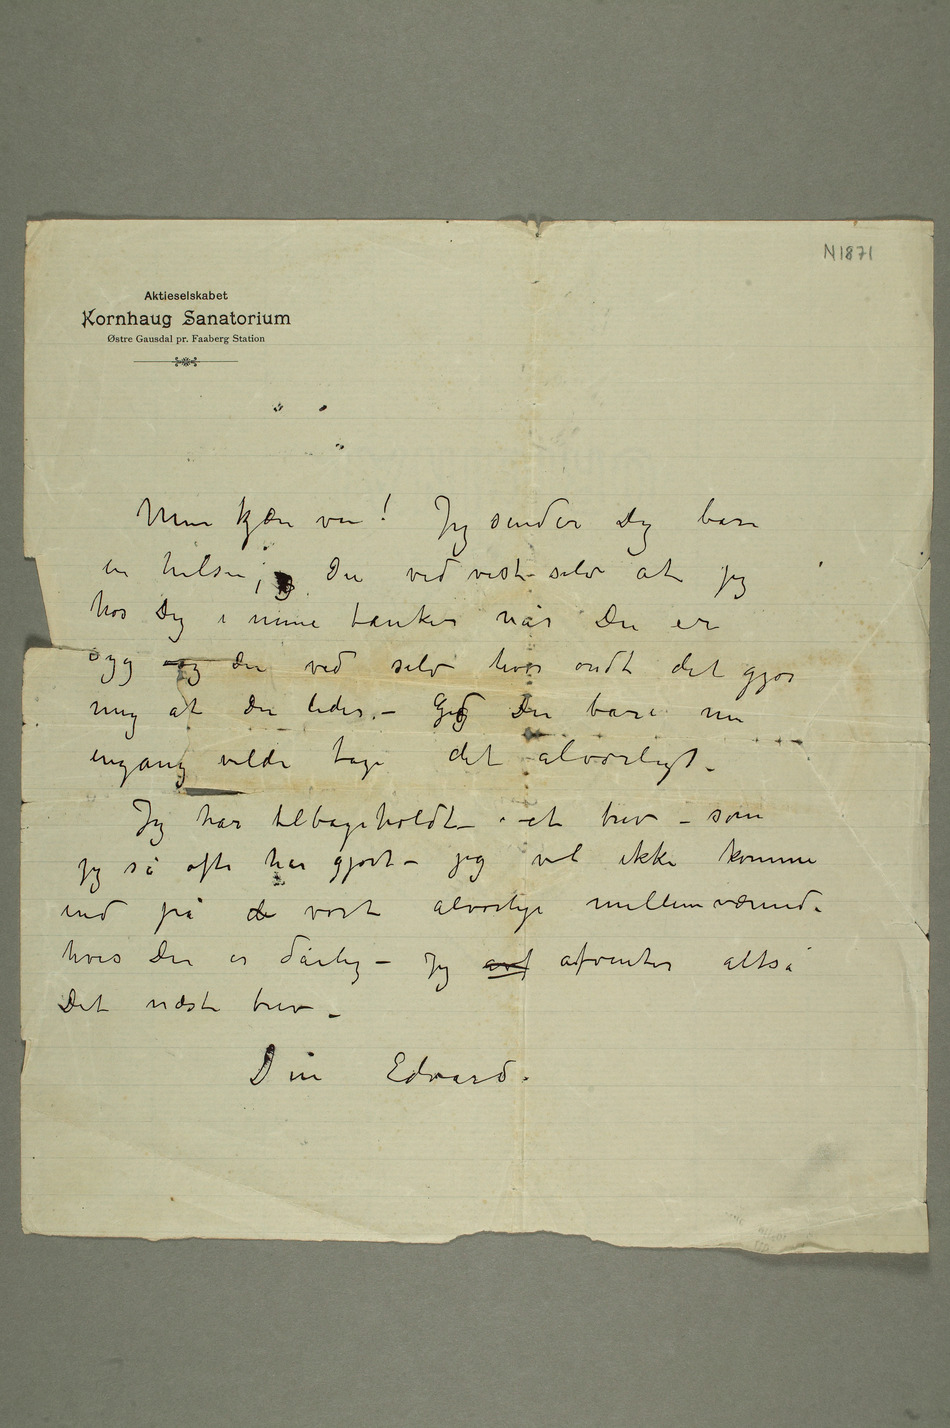 N1871
Aktieselskabet
Kornhaug Sanatorium
Østre Gausdal pr. Faaberg Station
Min kjære ven! Jeg sender Dig bare
en hilsen; Du ved vist selv at jeg
hos Dig i mine tanker når Du er
syg og du ved selv hvor ondt det gjør
mig at Du lider. – Gid Du bare nu
engang vilde tage det alvorligt –
Jeg har tilbageholdt – et brev – som
jeg så ofte har gjort – jeg vil ikke komme
ind på de vort alvorlige mellemværende
hvis Du er dårlig – Jeg avf afventer altså
Dit næste brev –
Din Edvard.